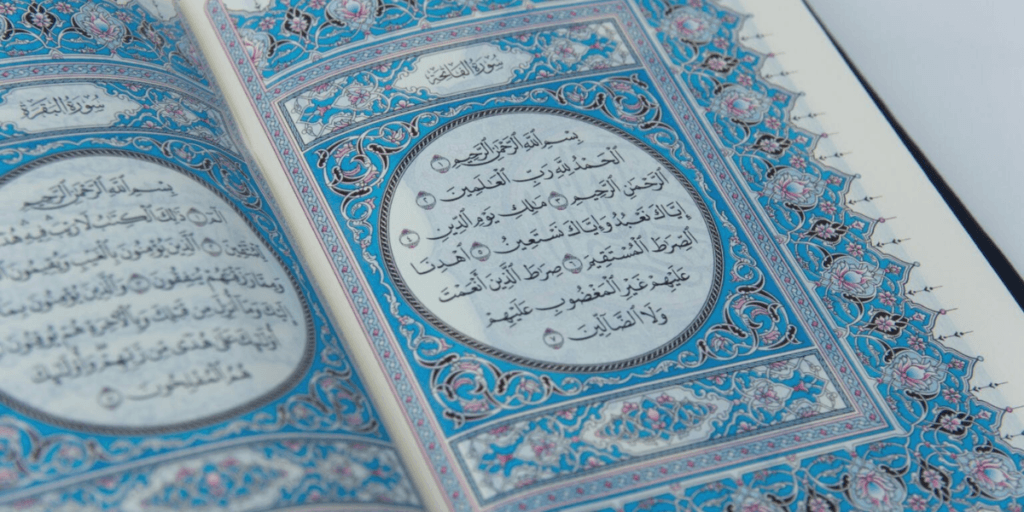 سُورَةُ الْفَاتِحَةِ
بِسْمِ اللَّهِ الرَّحْمَٰنِ الرَّحِيمِ ١
الْحَمْدُ لِلَّهِ رَبِّ الْعَالَمِينَ ٢
الرَّحْمَٰنِ الرَّحِيمِ ٣ مَالِكِ يَوْمِ الدِّينِ ٤
إِيَّاكَ نَعْبُدُ وَإِيَّاكَ نَسْتَعِينُ ٥ اهْدِنَا
الصِّرَاطَ الْمُسْتَقِيمَ ٦ صِرَاطَ الَّذِينَ أَنْعَمْتَ
عَلَيْهِمْ غَيْرِ الْمَغْضُوبِ عَلَيْهِمْ
وَلَا الضَّالِّينَ ٧
سُورَةُ الْبَقَرَةِ
بِسْمِ اللَّهِ الرَّحْمَٰنِ الرَّحِيمِ
الم ١ ذَٰلِكَ الْكِتَابُ لَا رَيْبَ فِيهِ
لِلْمُتَّقِينَ ٢ الَّذِينَ يُؤْمِنُونَ بِالْغَيْبِ وَيُقِيمُونَ
وَمِمَّا رَزَقْنَاهُمْ يُنْفِقُونَ ٣ وَالَّذِينَ يُؤْمِنُونَ بِمَا
إِلَيْكَ وَمَا أُنْزِلَ مِنْ قَبْلِكَ وَبِالْآخِرَةِ هُمْ يُوقِنُونَ
أُولَٰئِكَ عَلَىٰ هُدًى مِنْ رَبِّهِمْ وَأُولَٰئِكَ
هُمُ الْمُفْلِحُونَ ٥